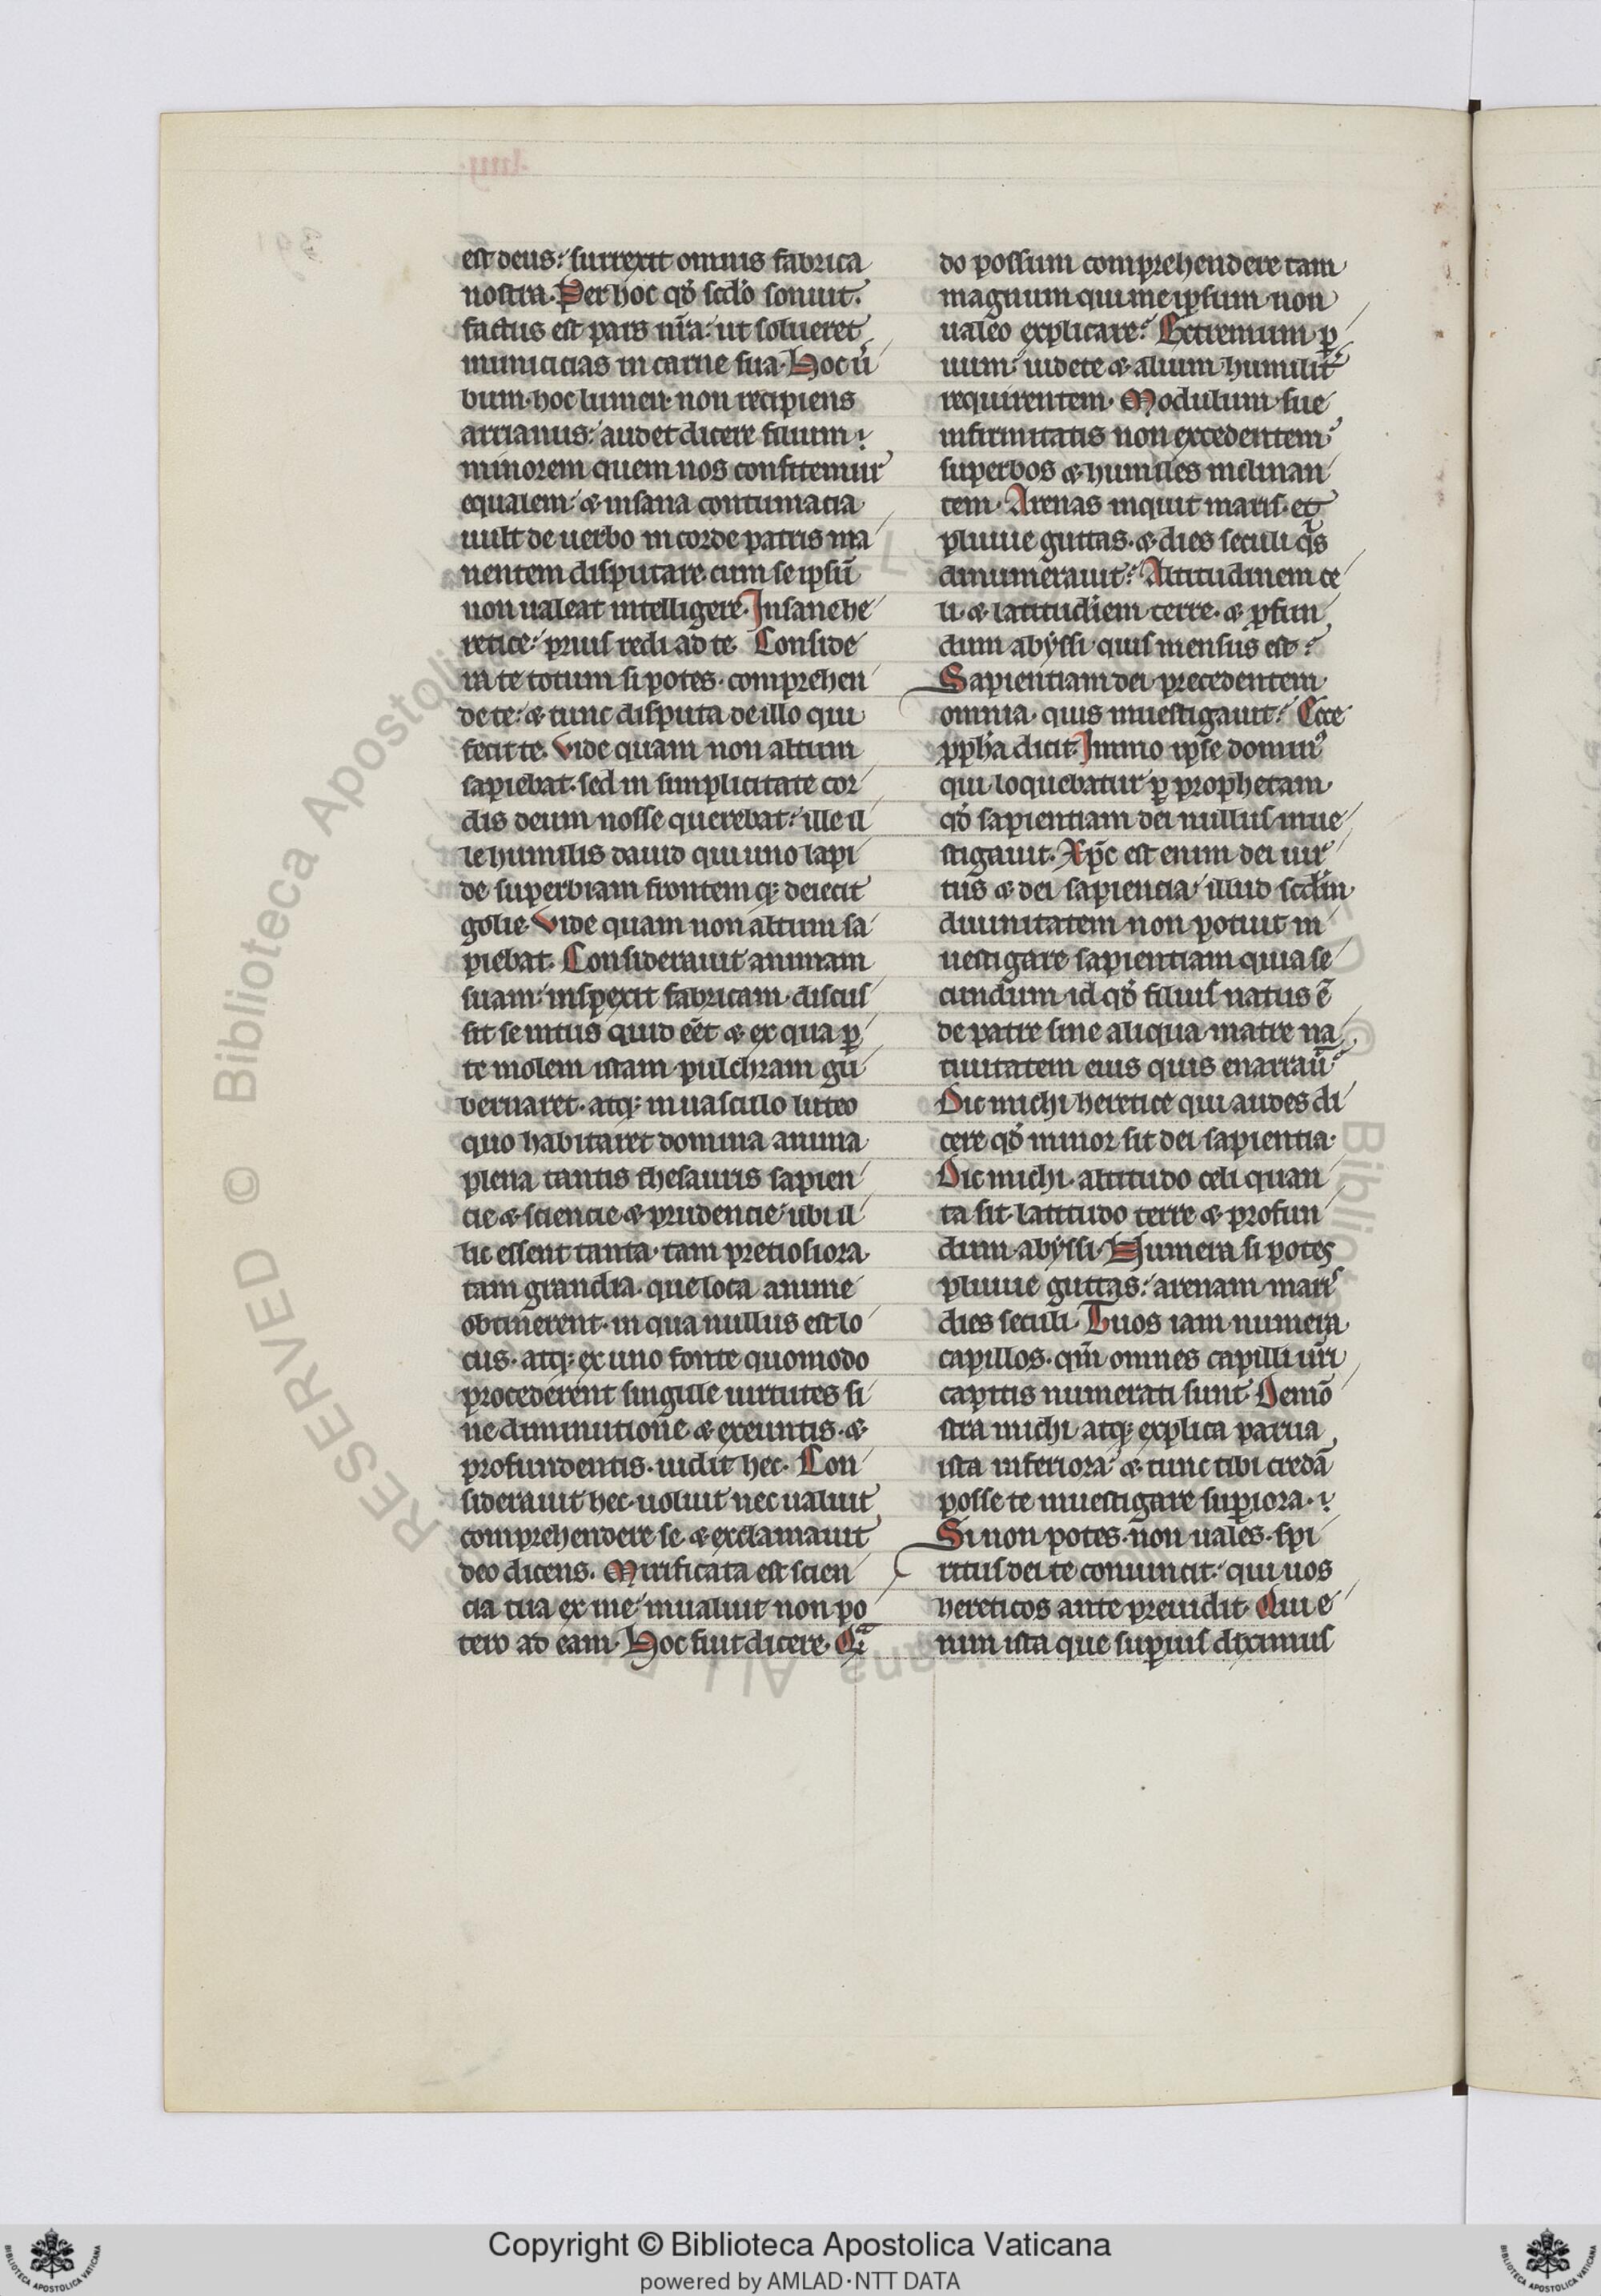 est deus: surrexit omnis fabrica
nostra. Per hoc qđ scđo sonuit.
factus est pars nr̄a: ut solueret
inimicicias in carne sua. Hoc u̾
bum. hoc lumen. non recipiens
arrianus: audet dicere filium
minorem quem nos confitemur
equalem: & insana contumacia
uult de uerbo in corde patris ma
nentem disputare. cum se ipsū
non ualeat intelligere. Insane he
retice: prius redi ad te. Conside
ra te totum si potes. comprehen
de te: & tunc disputa de illo qui
fecit te. Vide quam non altum
sapiebat. sed in simplicitate cor
dis deum nosse querebat: ille il
le humilis dauid qui uno lapi
de superbiam frontemq; deiecit
golie. Vide quam non altum sa
piebat. Considerauit animam
suam: inspexit fabricam. discus
sit se intus quid eēt & ex qua ꝑ
te molem istam pulchram gu
bernaret. atq; in uasculo luteo
quo habitaret domina anima
plena tantis thesauris sapien
cie & sciencie & prudencie: ubi il
lic essent tanta. tam pretiosiora
tam grandia. que loca anime
obtinerent. in qua nullus est lo
cus. atq; ex uno fonte quomodo
procederent singule uirtutes si
ne diminutione & exeuntis. &
profundentis. uidit hec. Con
siderauit hec. uoluit nec ualuit
comprehendere se. & exclamauit
deo dicens. Mirificata est scien
cia tua ex me: inualuit non po
tero ad eam. Hoc fuit dicere. Qᵃ
do possum comprehendere tam
magnum qui me ipsum non
ualeo explicare? Extremum ꝑ
uum: uidete & alium humilit̾
requirentem. Modulum sue
infirmitatis non excedentem:
superbos & humiles inclinan
tem. Arenas inquit maris. et
pluuie guttas. & dies seculi q̄s
dinumerauit? Altitudinem ce
li. & latitudinem terre. & ꝓfun
dum abyssi quis mensus est?
Sapientiam dei precedentem
omnia. quis inuestigauit? Ecce
ꝓpħa dicit. Immo ipse dominꝰ
qui loquebatur ꝑ prophetam.
qđ sapientiam dei nullus inue
stigauit. Xp̄c est enim dei uir
tus & dei sapiencia: illud scđm
diuinitatem non potuit in
uestigare sapientiam quia se
cundum id qđ filius natus ē
de patre sine aliqua matre na
tiuitatem eius quis enarrau̾?
Dic michi heretice qui audes di
cere qđ minor sit dei sapientia.
Dic michi. altitudo celi quan
ta sit. latitudo terre & profun
dum abyssi. Numera si potes
pluuie guttas: arenam maris
dies seculi. Tuos iam numera
capillos. qm̄ omnes capilli uri
capitis numerati sunt. Demō
stra michi atq; explica parua
ista inferiora: & tunc tibi credā
posse te inuestigare suꝑiora.
Si non potes. non uales. spi
ritus dei te conuincit: qui uos
hereticos ante preuidit. Qui e
nim ista que superius diximus
Copyright © Biblioteca Apostolica Vaticana
powered by AMLAD·NTT DATA